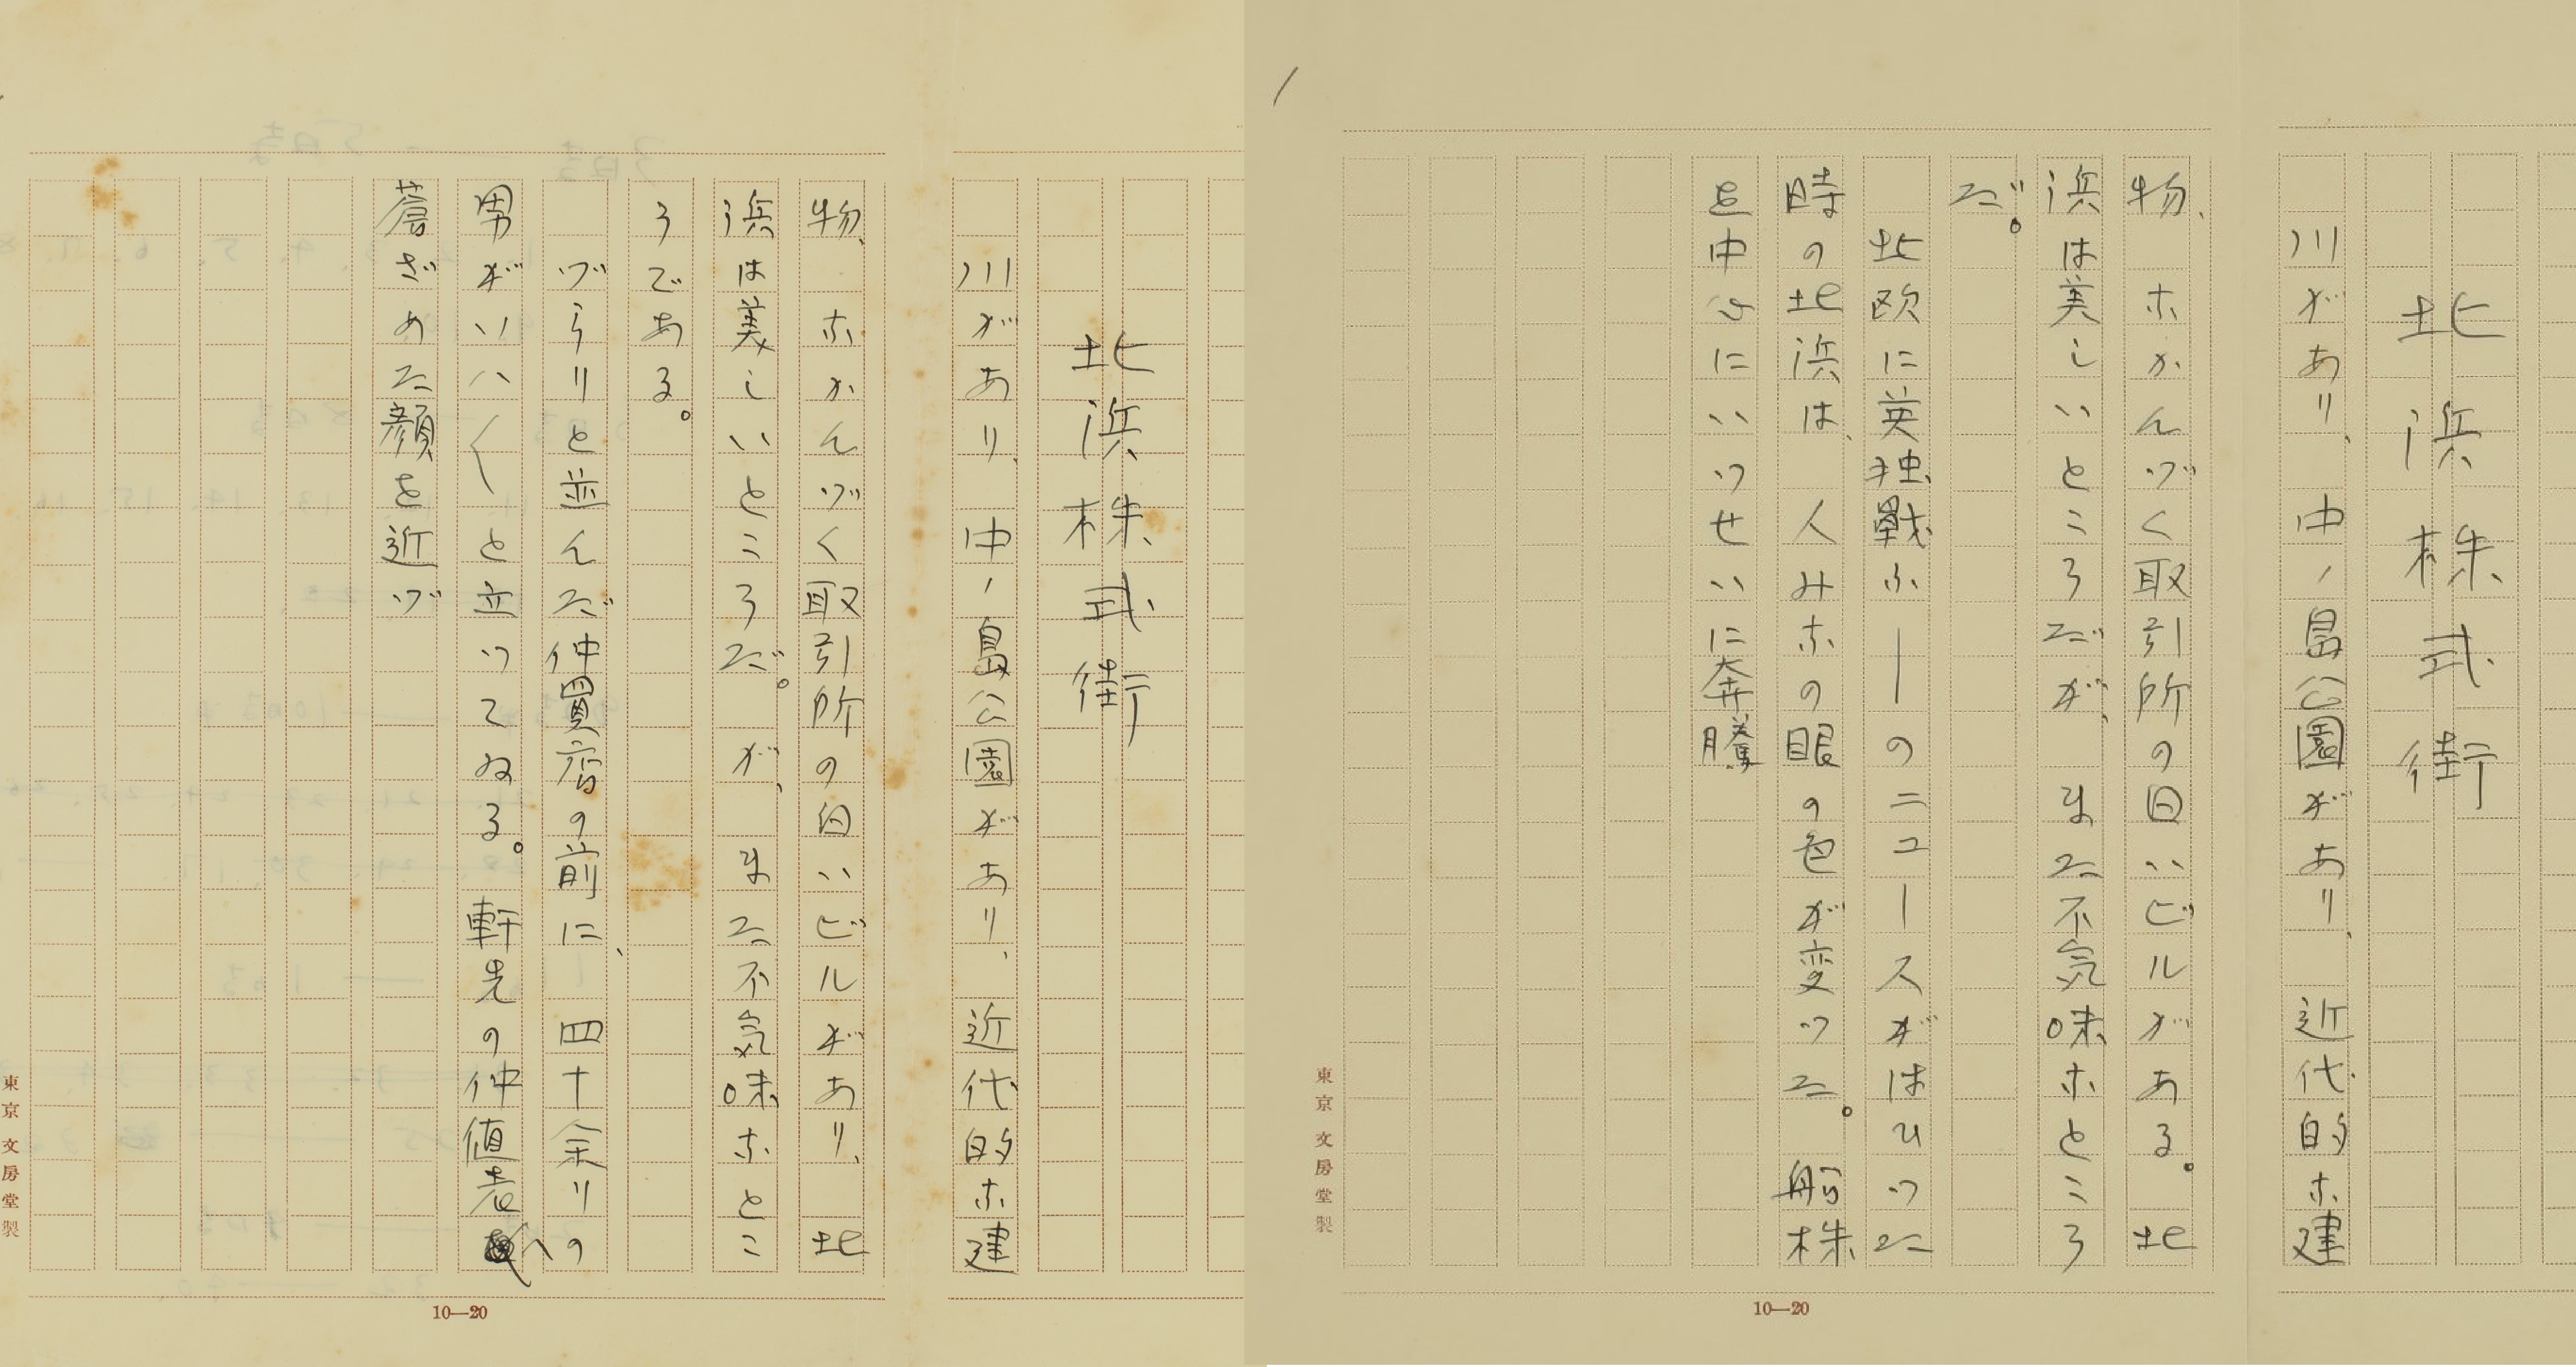 北浜株式街
川があり、中ノ島公園があり、近代的な建
物、なかんづく取引所の白いビルがある。北
浜は美しいところだが、また不気味なところ
だ。
北欧に英独戦ふ――のニュースがはひつた
時の北浜は、人みなの眼の色が変つた。船株
を中心にいつせいに奔騰
東京文房堂製
10—20
北浜株式街
川があり、中ノ島公園があり、近代的な建
物、なかんづく取引所の白いビルがあり、北
浜は美しいところだ。が、また不気味なとこ
ろである。
づらりと並んだ仲買店の前に、四十余りの
男がと立つてゐる。軒先の仲値表へ
蒼ざめた顔を近づ
東京文房堂製
10—20